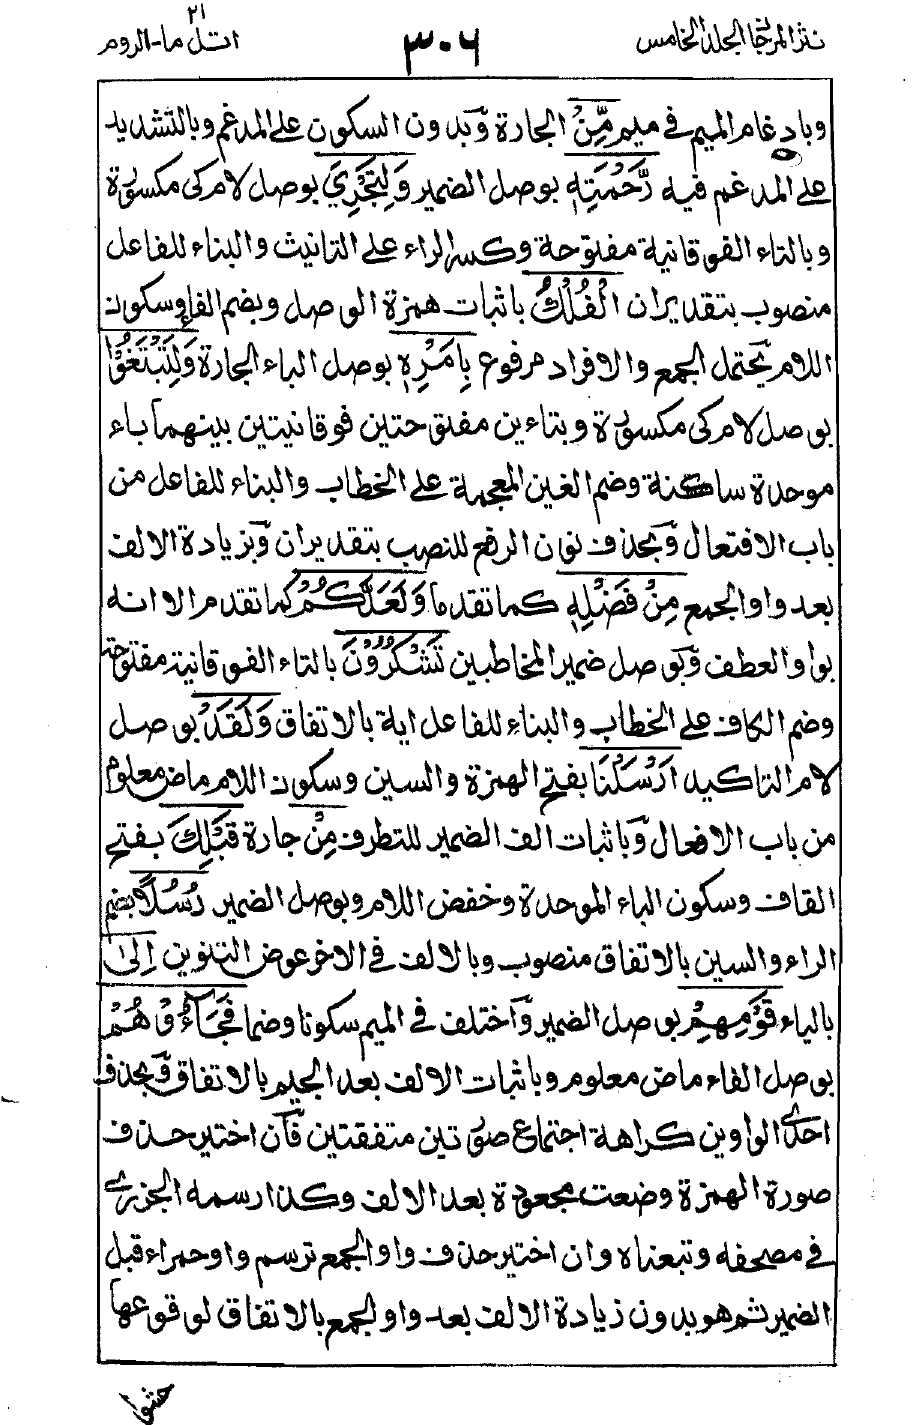 نثر المرجان الجلد الخامس
٣٠٦
اتل ما-الروم
٢١
وبادغام الميم في ميم مِّنْ الجارة وَّبدون السكون على المدغم وبالتشديد
على المدغم فيه رَّحْمَتِهٖ بوصل الضمير وَلِتَجْرِيَ بوصل لام كى مكسورة
وبالتاء الفوقانية مفتوحة وكسر الراء على التانيث والبناء للفاعل
منصوب بتقدير ان الْفُلْكُ باثبات همزة الوصل وبضم الفاء وسكون
اللام يحتمل الجمع والافراد مرفوع بِاَمْرِهٖ بوصل الباء الجارة وَلِتَبْتَغُوْا
بوصل لام كى مكسورة وبتاءين مفتوحتين فوقانيتين بينهما باء
موحدة ساكنة وضم الغين المعجمة على الخطاب والبناء للفاعل من
باب الافتعال وَّبحذف نون الرفع للنصب بتقدير ان وَّبزيادة الالف
بعد واو الجمع مِنْ فَضْلِهٖ كما تقدما وَلَعَلَّكُمْ كما تقدم الا انه
بواو العطف وَّبوصل ضمير المخاطبين تَشْكُرُوْنَ بالتاء الفوقانية مفتوحة
وضم الكاف على الخطاب والبناء للفاعل اية بالاتفاق وَلَقَدْ بوصل
لام التاكيد اَرْسَلْنَا بفتح الهمزة والسين وسكون اللام ماض معلوم
من باب الافعال وَّباثبات الف الضمير للتطرف مِنْ جارة قَبْلِكَ بفتح
القاف وسكون الباء الموحدة وخفض اللام وبوصل الضمير رُسُلًا بضم
الراء والسين بالاتفاق منصوب وبالالف في الاخر عوض التنوين اِلٰى
بالياء قَوْمِهِمْ بوصل الضمير وَّاختلف في الميم سكونا وضما فَجَآءُوْهُمْ
بوصل الفاء ماض معلوم وباثبات الالف بعد الجيم بالاتفاق وَّبحذف
احدى الواوين كراهة اجتماع صورتين متفقتين فَاِن اختير حذف
صورة الهمزة وضعت مجعودة بعد الالف وكذا رسمه الجزري
في مصحفه وتبعناه وان اختير حذف واو الجمع ترسم واو حمراء قبل
الضمير ثم هو بدون زيادة الالف بعد واو الجمع بالاتفاق لوقوعها
حشوا